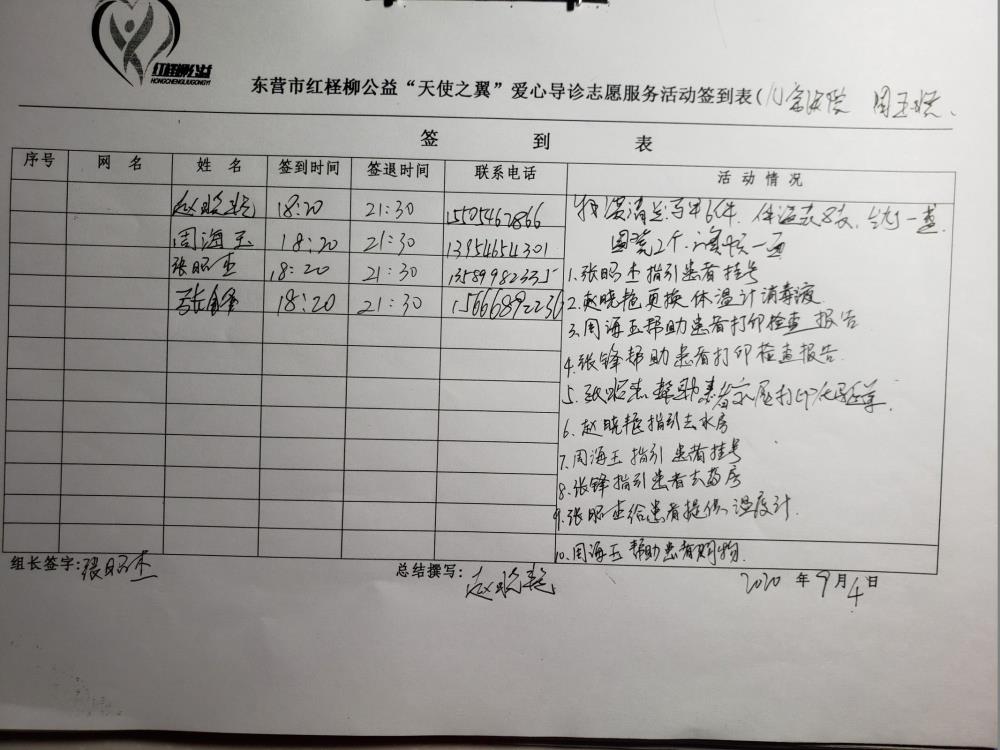 红柽柳公益
HONGCHENGLIUGONGYI
东营市红柽柳公益“天使之翼”爱心导诊志愿服务活动签到表(
签 到 表
序号 网 名 姓 名 签到时间 签退时间 联系电话 活 动 情 况
赵晓艳 18:20 21:30 15505462866
周海玉 18:20 21:30 13954654301
张昭杰 18:20 21:30 13589982335
张锋 18:20 21:30 1566689223
体温表8支
1.张昭杰指引患者挂号
2.赵晓艳更换体温计消毒液
3.周海玉帮助患者打印检查报告
4.张锋帮助患者打印检查报告.
5.张昭杰帮助患者家属打印化验单.
6.赵晓艳指引去水房
7.周海玉指引患者挂号
8.张锋指引患者去药房
9.张昭杰给患者提供温度计.
10.周海玉帮助患者购物.
组长签字:张昭杰 总结撰写:赵晓艳 2020 年9月4日